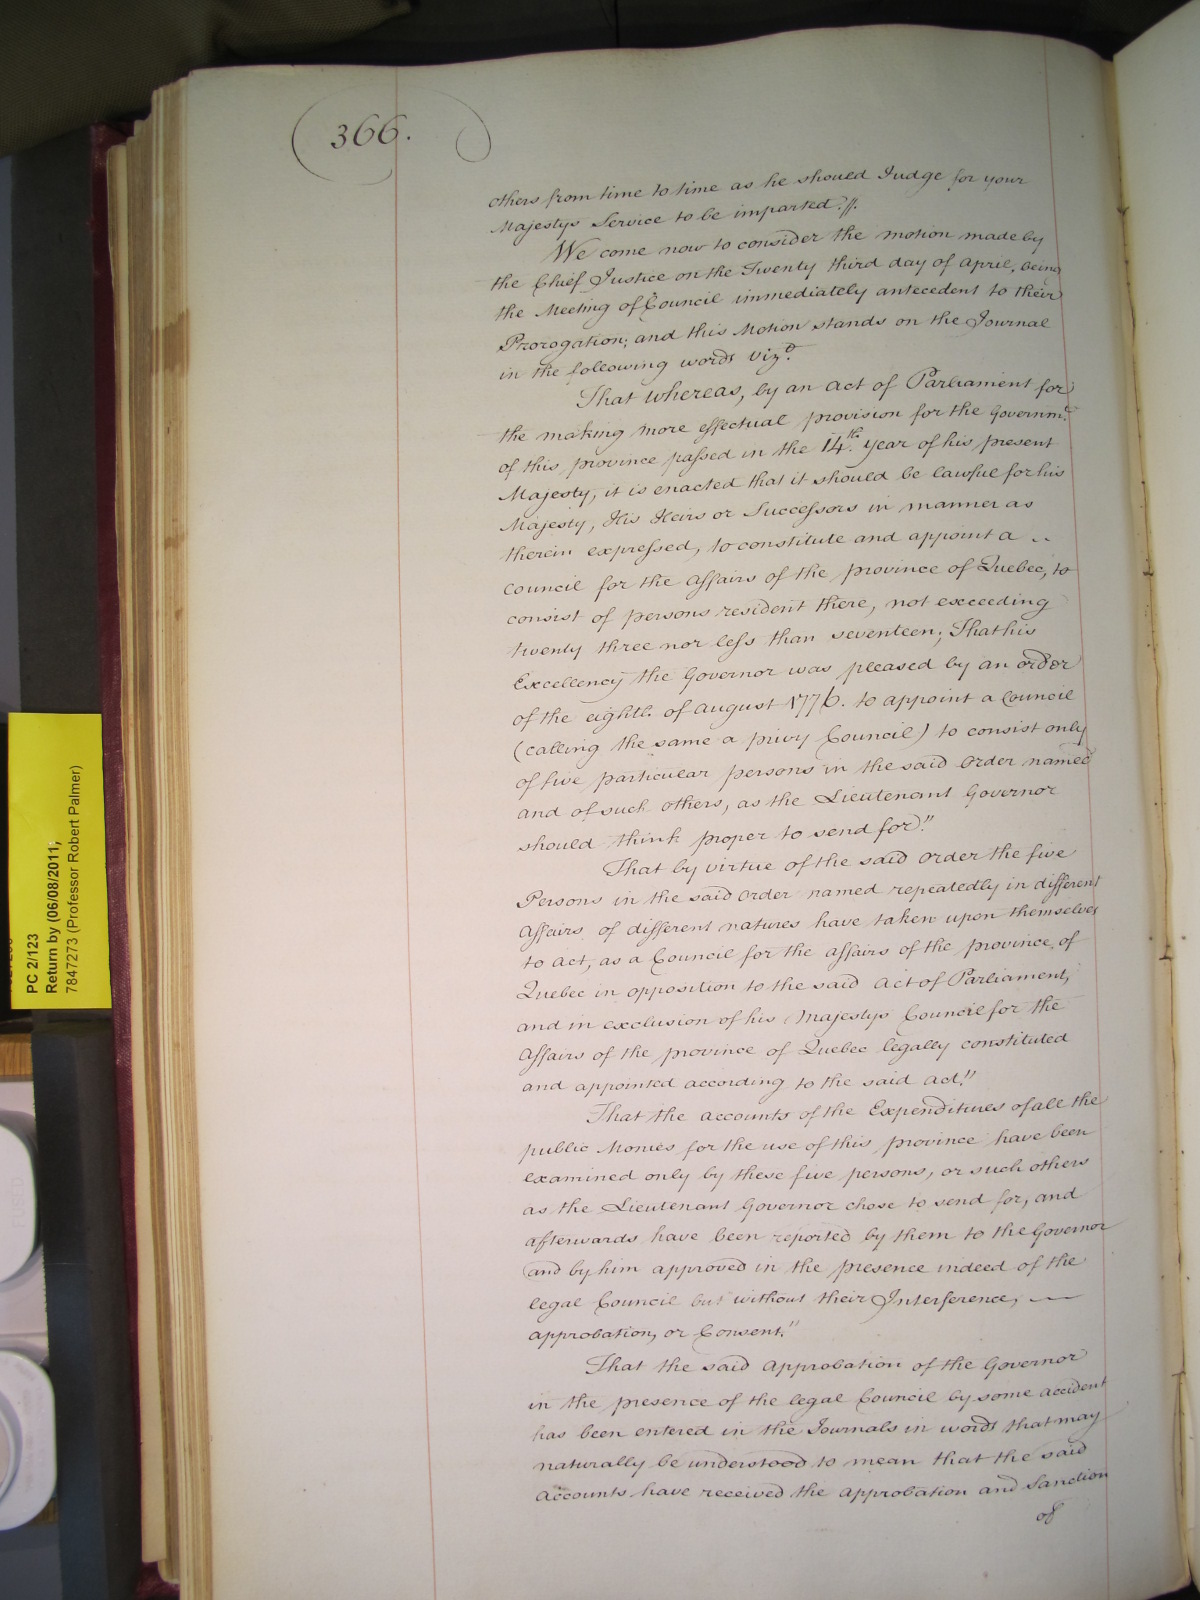 366.
others from time to time as he should Judge for your
Majestys Service to be imparted?//.
We come now to consider the motion made by
the Chief Justice on the Twenty third day of April, being
the Meeting of Council immediately antecedent to their
Prorogation; and this Motion stands on the Journal
in the following words vizt.
That whereas, by an act of Parliament for
the making more effectual provision for the Governmt.
of this province passed in the 14th. year of his present
Majesty, it is enacted that it should be lawful for his
Majesty, His Heirs or Successors in manner as
therein expressed, to constitute and appoint a
Council for the affairs of the province of Quebec, to
consist of persons resident there, not exceeding
twenty three nor less than seventeen; That his
Excellency the Governor was pleased by an order
of the eighth. of august 1776. to appoint a Council
(calling the same a privy Council) to consist only
of five particular persons in the said order named
and of such others, as the Lieutenant Governor
should think proper to send for."
That by virtue of the said order the five
Persons in the said order named repeatedly in different
affairs of different natures have taken upon themselves
to act, as a Council for the affairs of the province of
Quebec in opposition to the said act of Parliament,
and in exclusion of his Majestys Council for the
affairs of the province of Quebec legally constituted
and appointed according to the said act."
That the accounts of the Expenditures of all the
public Monies for the use of this province have been
examined only by these five persons, or such others
as the Lieutenant Governor chose to send for, and
afterwards have been reported by them to the Governor
and by him approved in the presence indeed of the
legal Council but without their Interference,
approbation, or Consent."
That the said approbation of the Governor
in the presence of the legal Council by some accident
has been entered in the Journals in words that may
naturally be understood to mean that the said
accounts have received the approbation and Sanction
of
PC 2/123
Return by (06/08/2011;
7847273 (Professor Robert Palmer)